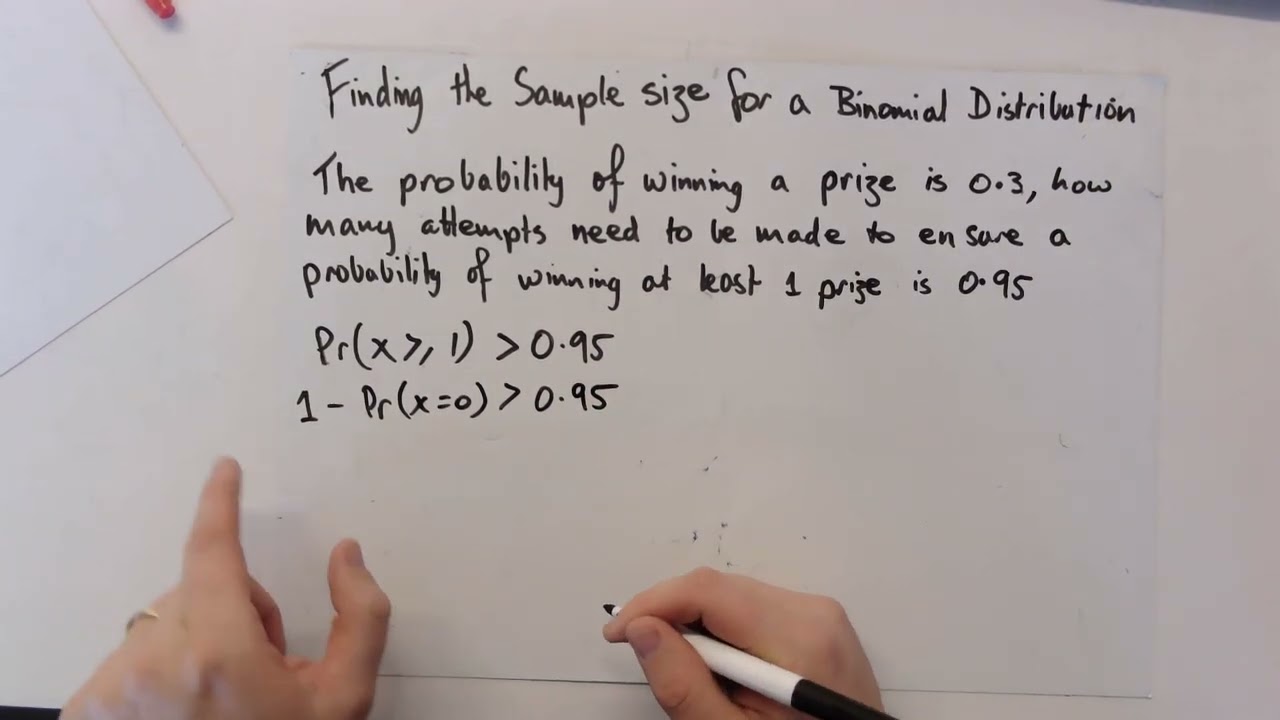 Finding the Sample size for a Binomial Distribution
The probability of winning a prize is 0.3, how
many attempts need to be made to ensure a
probability of winning at least 1 prize is 0.95
Pr(x ≥ 1) > 0.95
1 - Pr(x=0) > 0.95